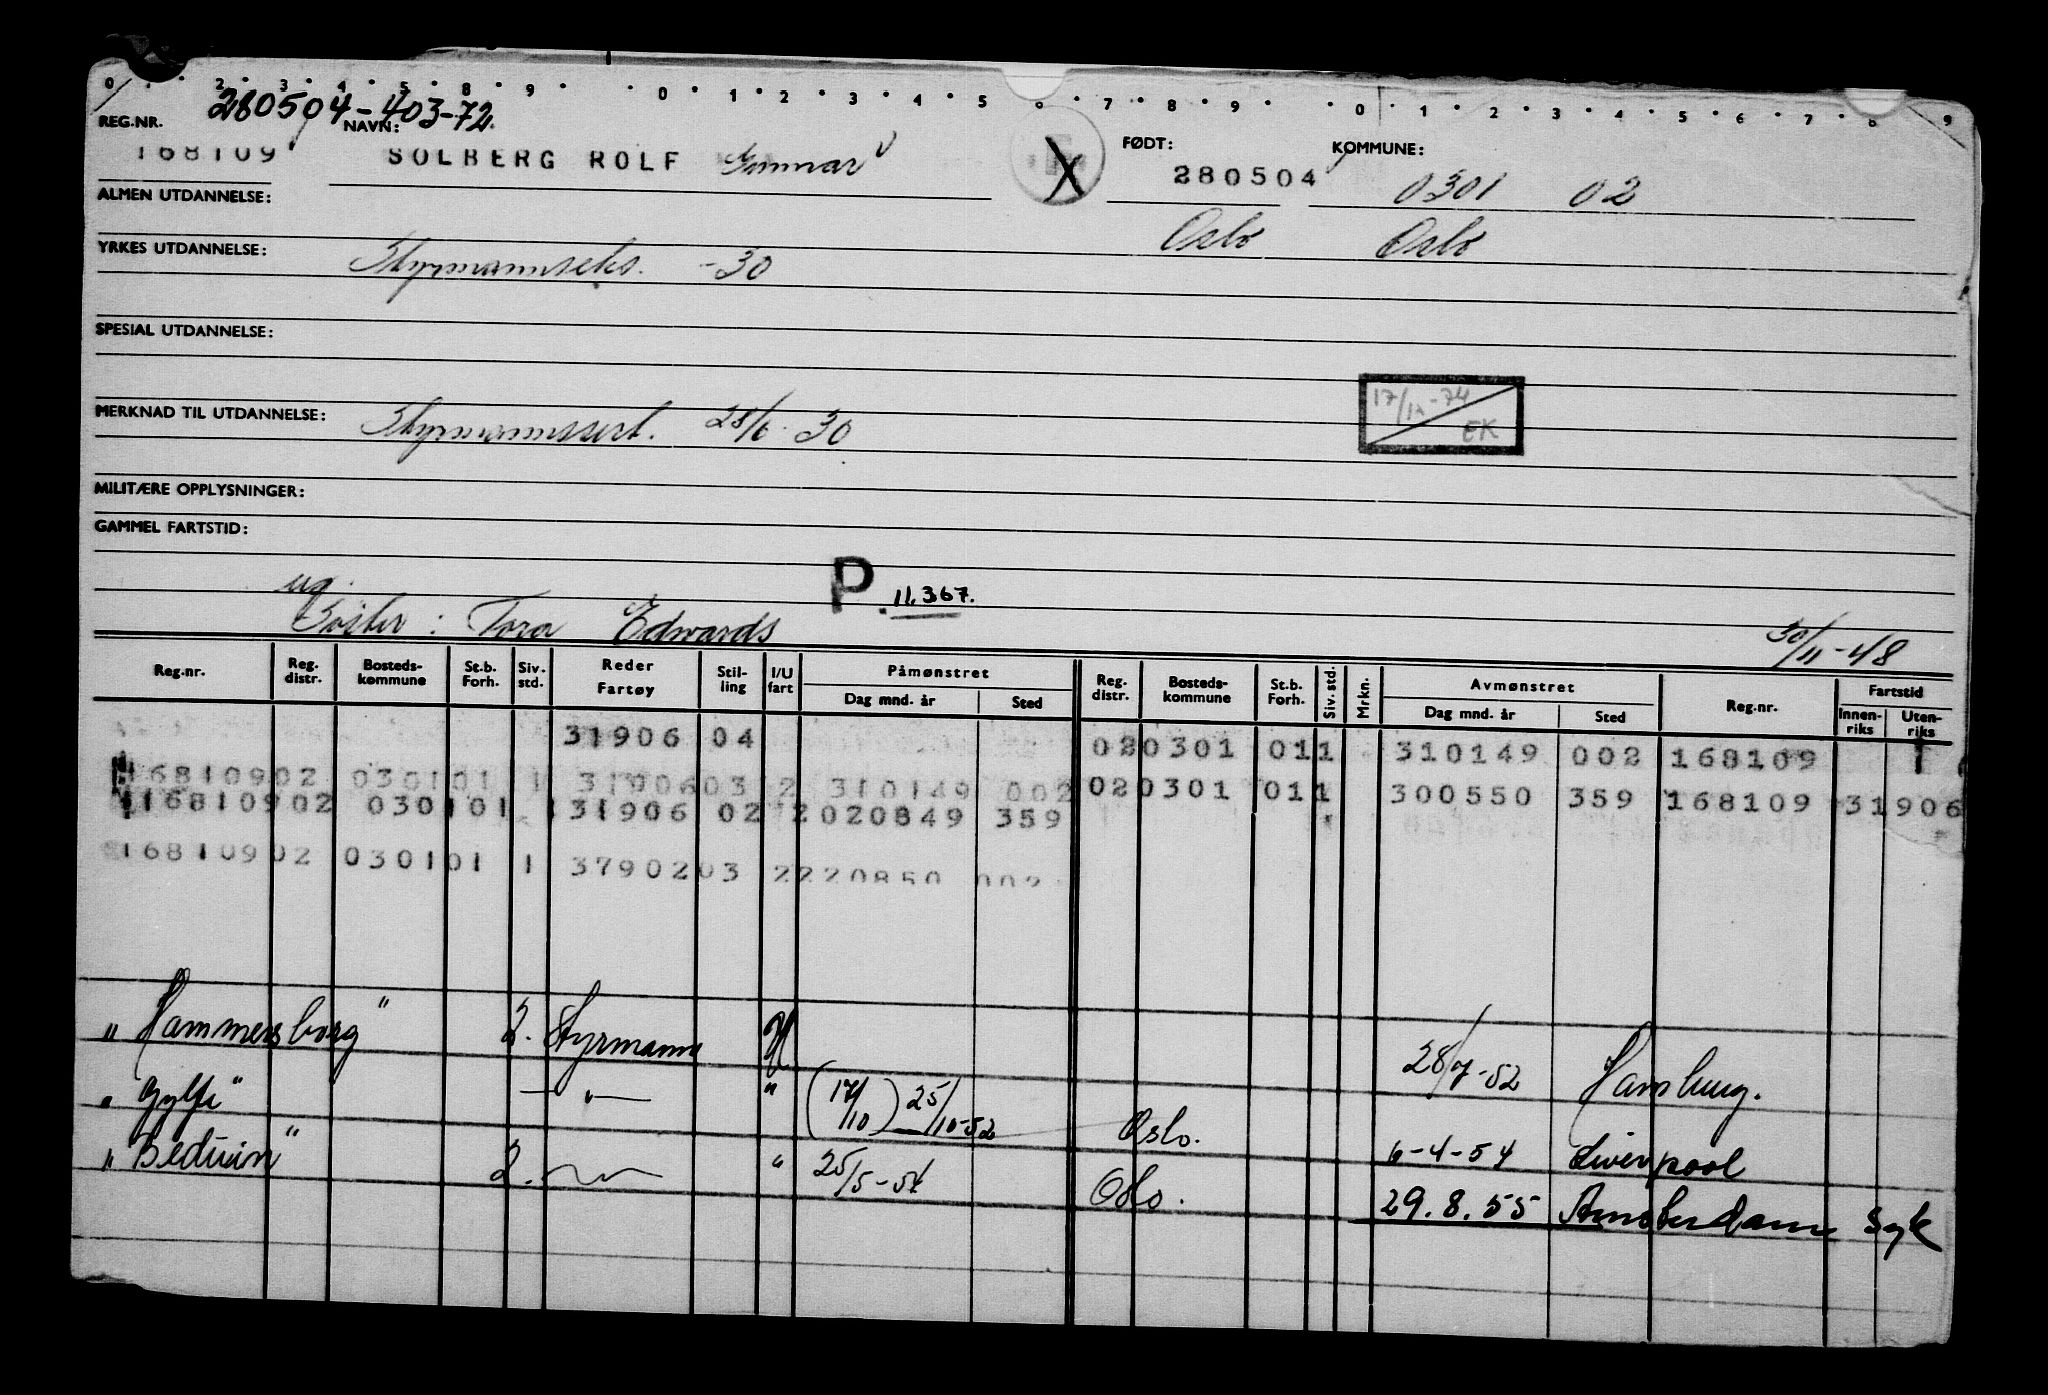 0 2 3 4 5 8 9 0 1 2 3 4 5 6 7 8 9 0 1 2 3 4 5 6 7 8 9
280504-403-72
REG.NR. NAVN: FØDT: KOMMUNE:
168109 SOLBERG ROLF Gunnar 280504 0301 02
ALMEN UTDANNELSE: Oslo Oslo
YRKES UTDANNELSE: Styrmannseks. -30
SPESIAL UTDANNELSE:
17/12-74
MERKNAD TIL UTDANNELSE: Styrmannssert. 28/6-30 EK
MILITÆRE OPPLYSNINGER:
GAMMEL FARTSTID:
ug. P. 11.367.
Søster: Tora Edwards 30/11-48
Reg.nr. Reg. distr. Bosteds-kommune St.b. Forh. Siv. std. Reder Fartøy Stil-ling I/U fart Påmønstret Dag mnd. år Sted Reg. distr. Bosteds-kommune St.b. Forh. Siv. std. Mrkn. Avmønstret Dag mnd. år Sted Reg.nr. Fartstid Innen-riks Uten-riks
31906 04 020301 011 310149 002 168109 1
16810902 030101 1 3190603 2 310149 002 020301 011 300550 359 168109 31906
16810902 030101 31906 02 2020849 359
16810902 030101 1 3790203 2220850 002
"Hammersborg" 2. Styrmann U 28/7-52 Hamburg.
"Gylfe" — " — " (17/10) 25/10-52 Oslo. 6-4-54 Liverpool
"Beduin" 2. " 25/5-54 Oslo. 29.8.55 Amsterdam Syk